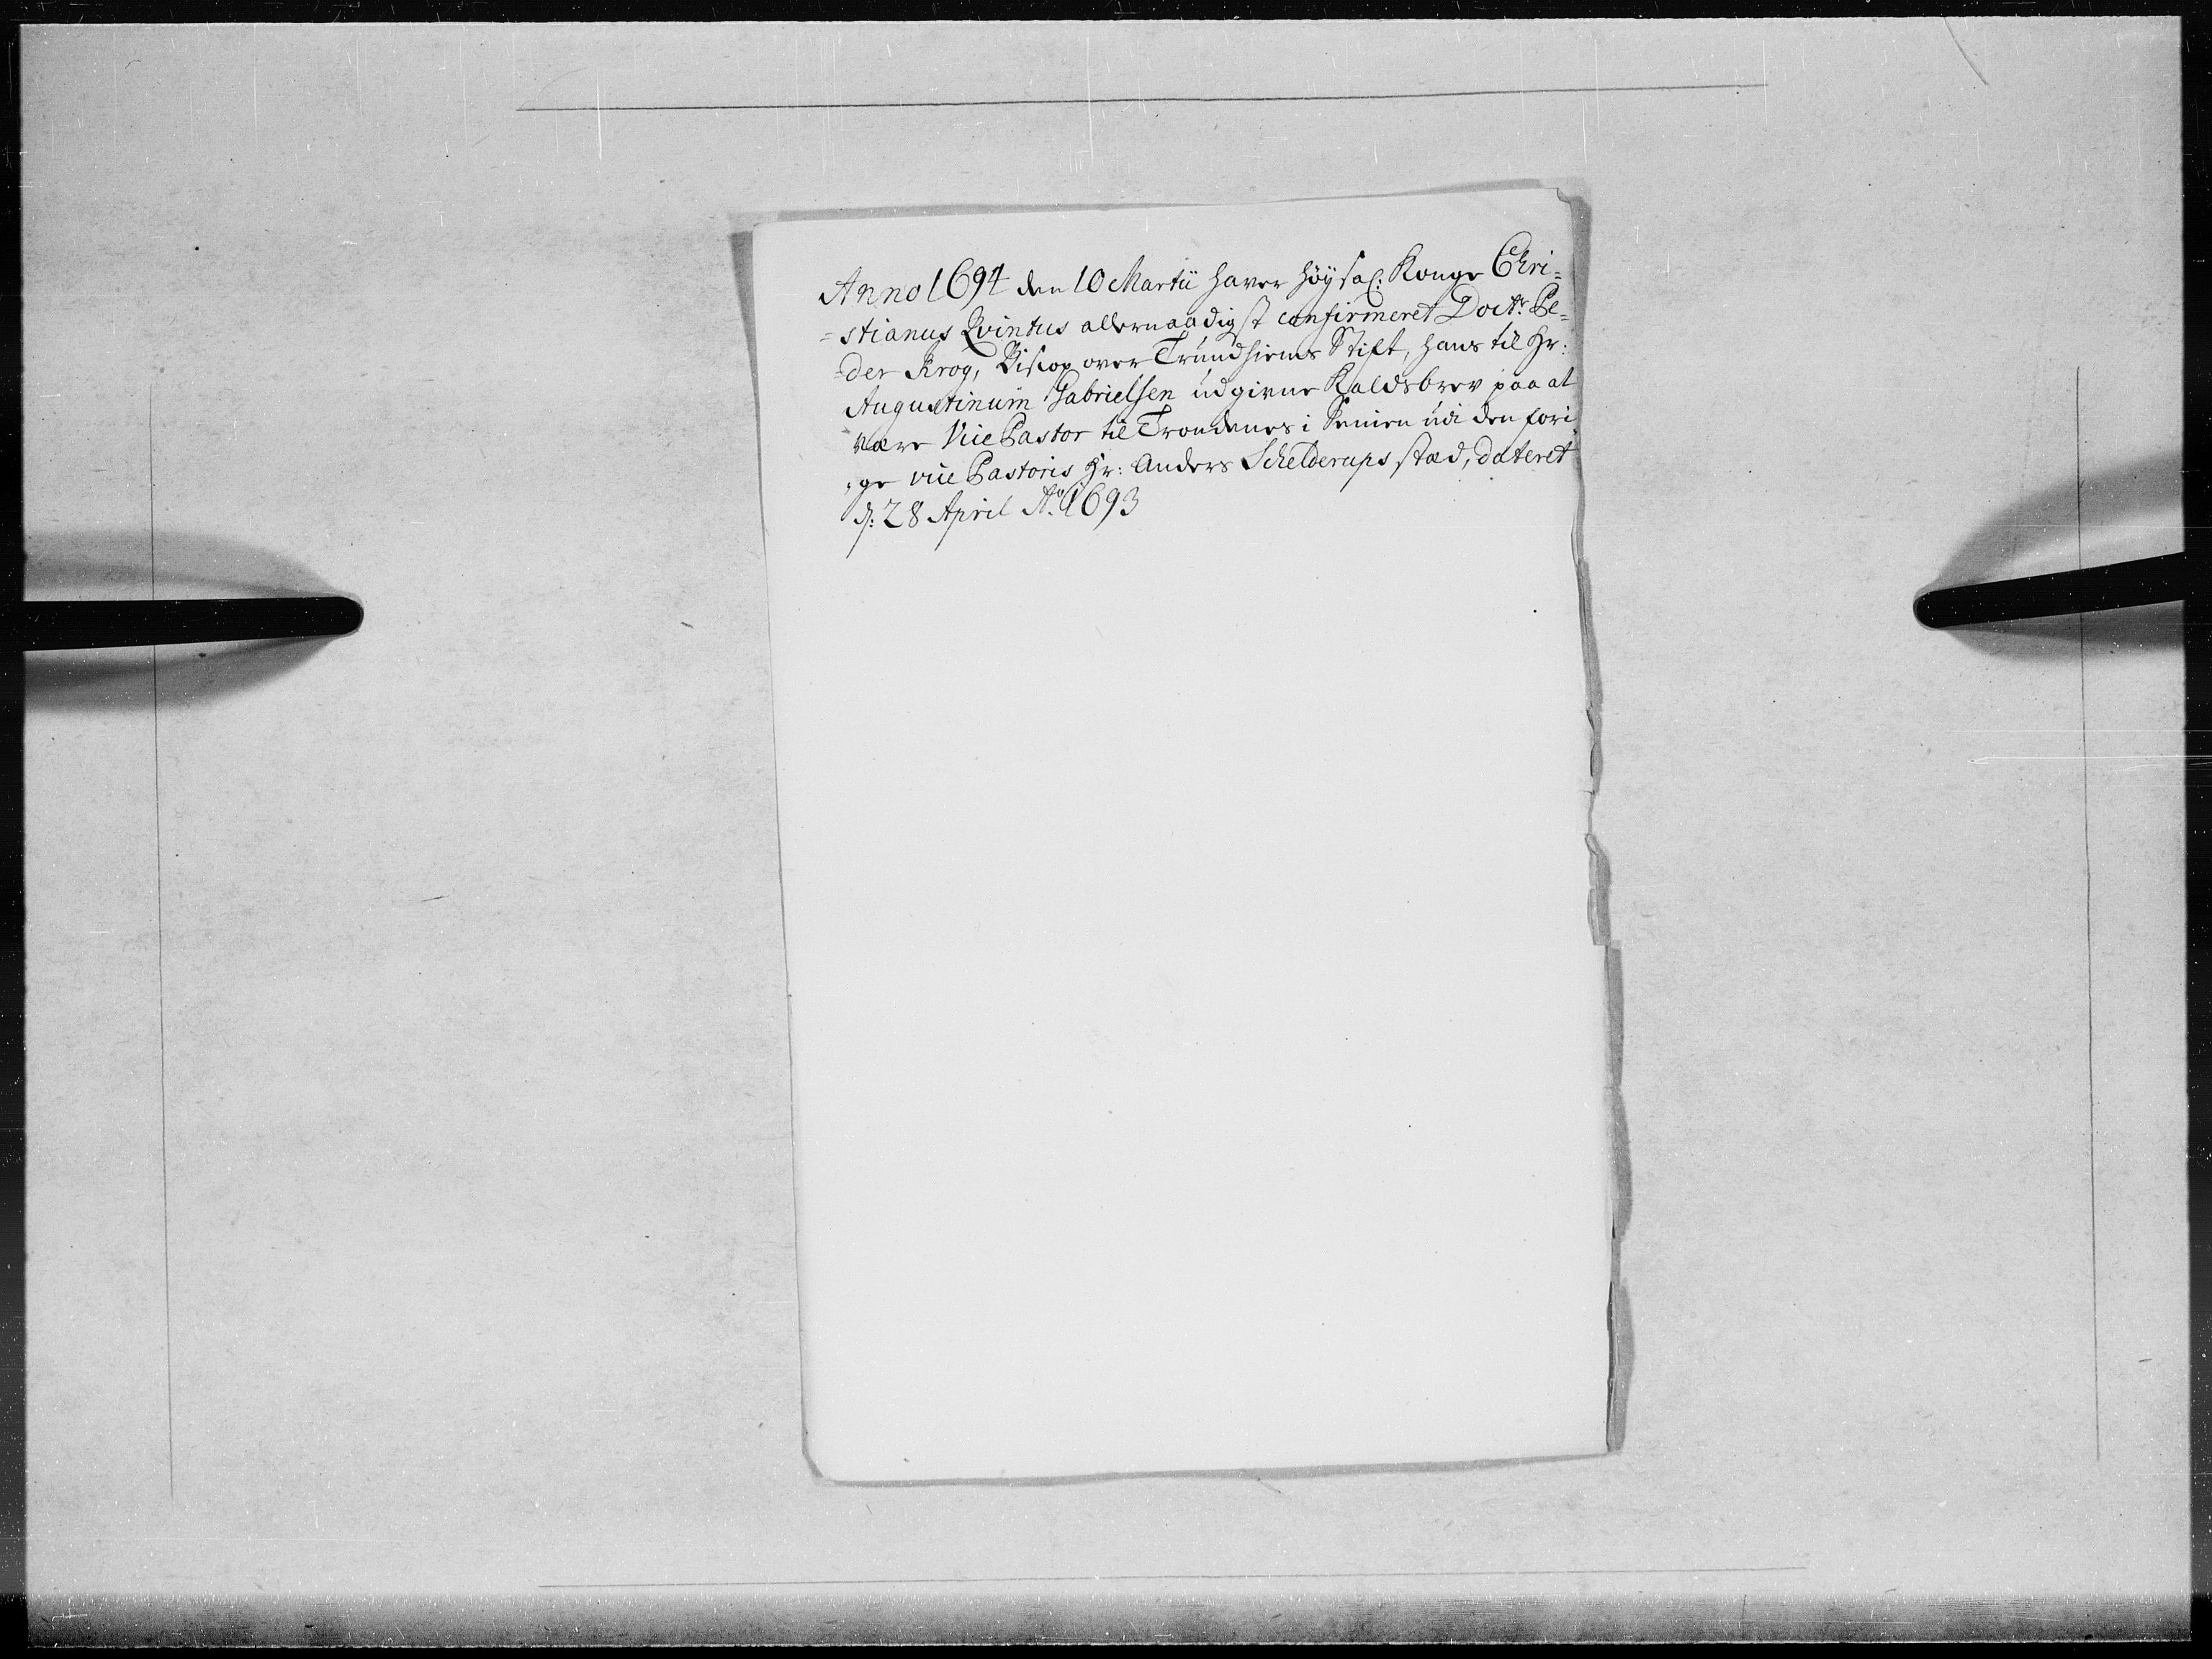 Anno 1694 den 10 Martii haver høysal: Konge Chri=
=stianus Qvintus allernaadigst confirmeret Doctr: Pe=
=der Krog, Biscop over Trundhiems Stift, hans til Hr:
Augustinum Gabrielsen udgivne Kaldsbrev paa at
være Vice Pastor til Trondenes i Senien udi den fori
ge vice Pastoris Hr: Anders Schelderups stæd, dateret
d: 28 April Ao: 1693